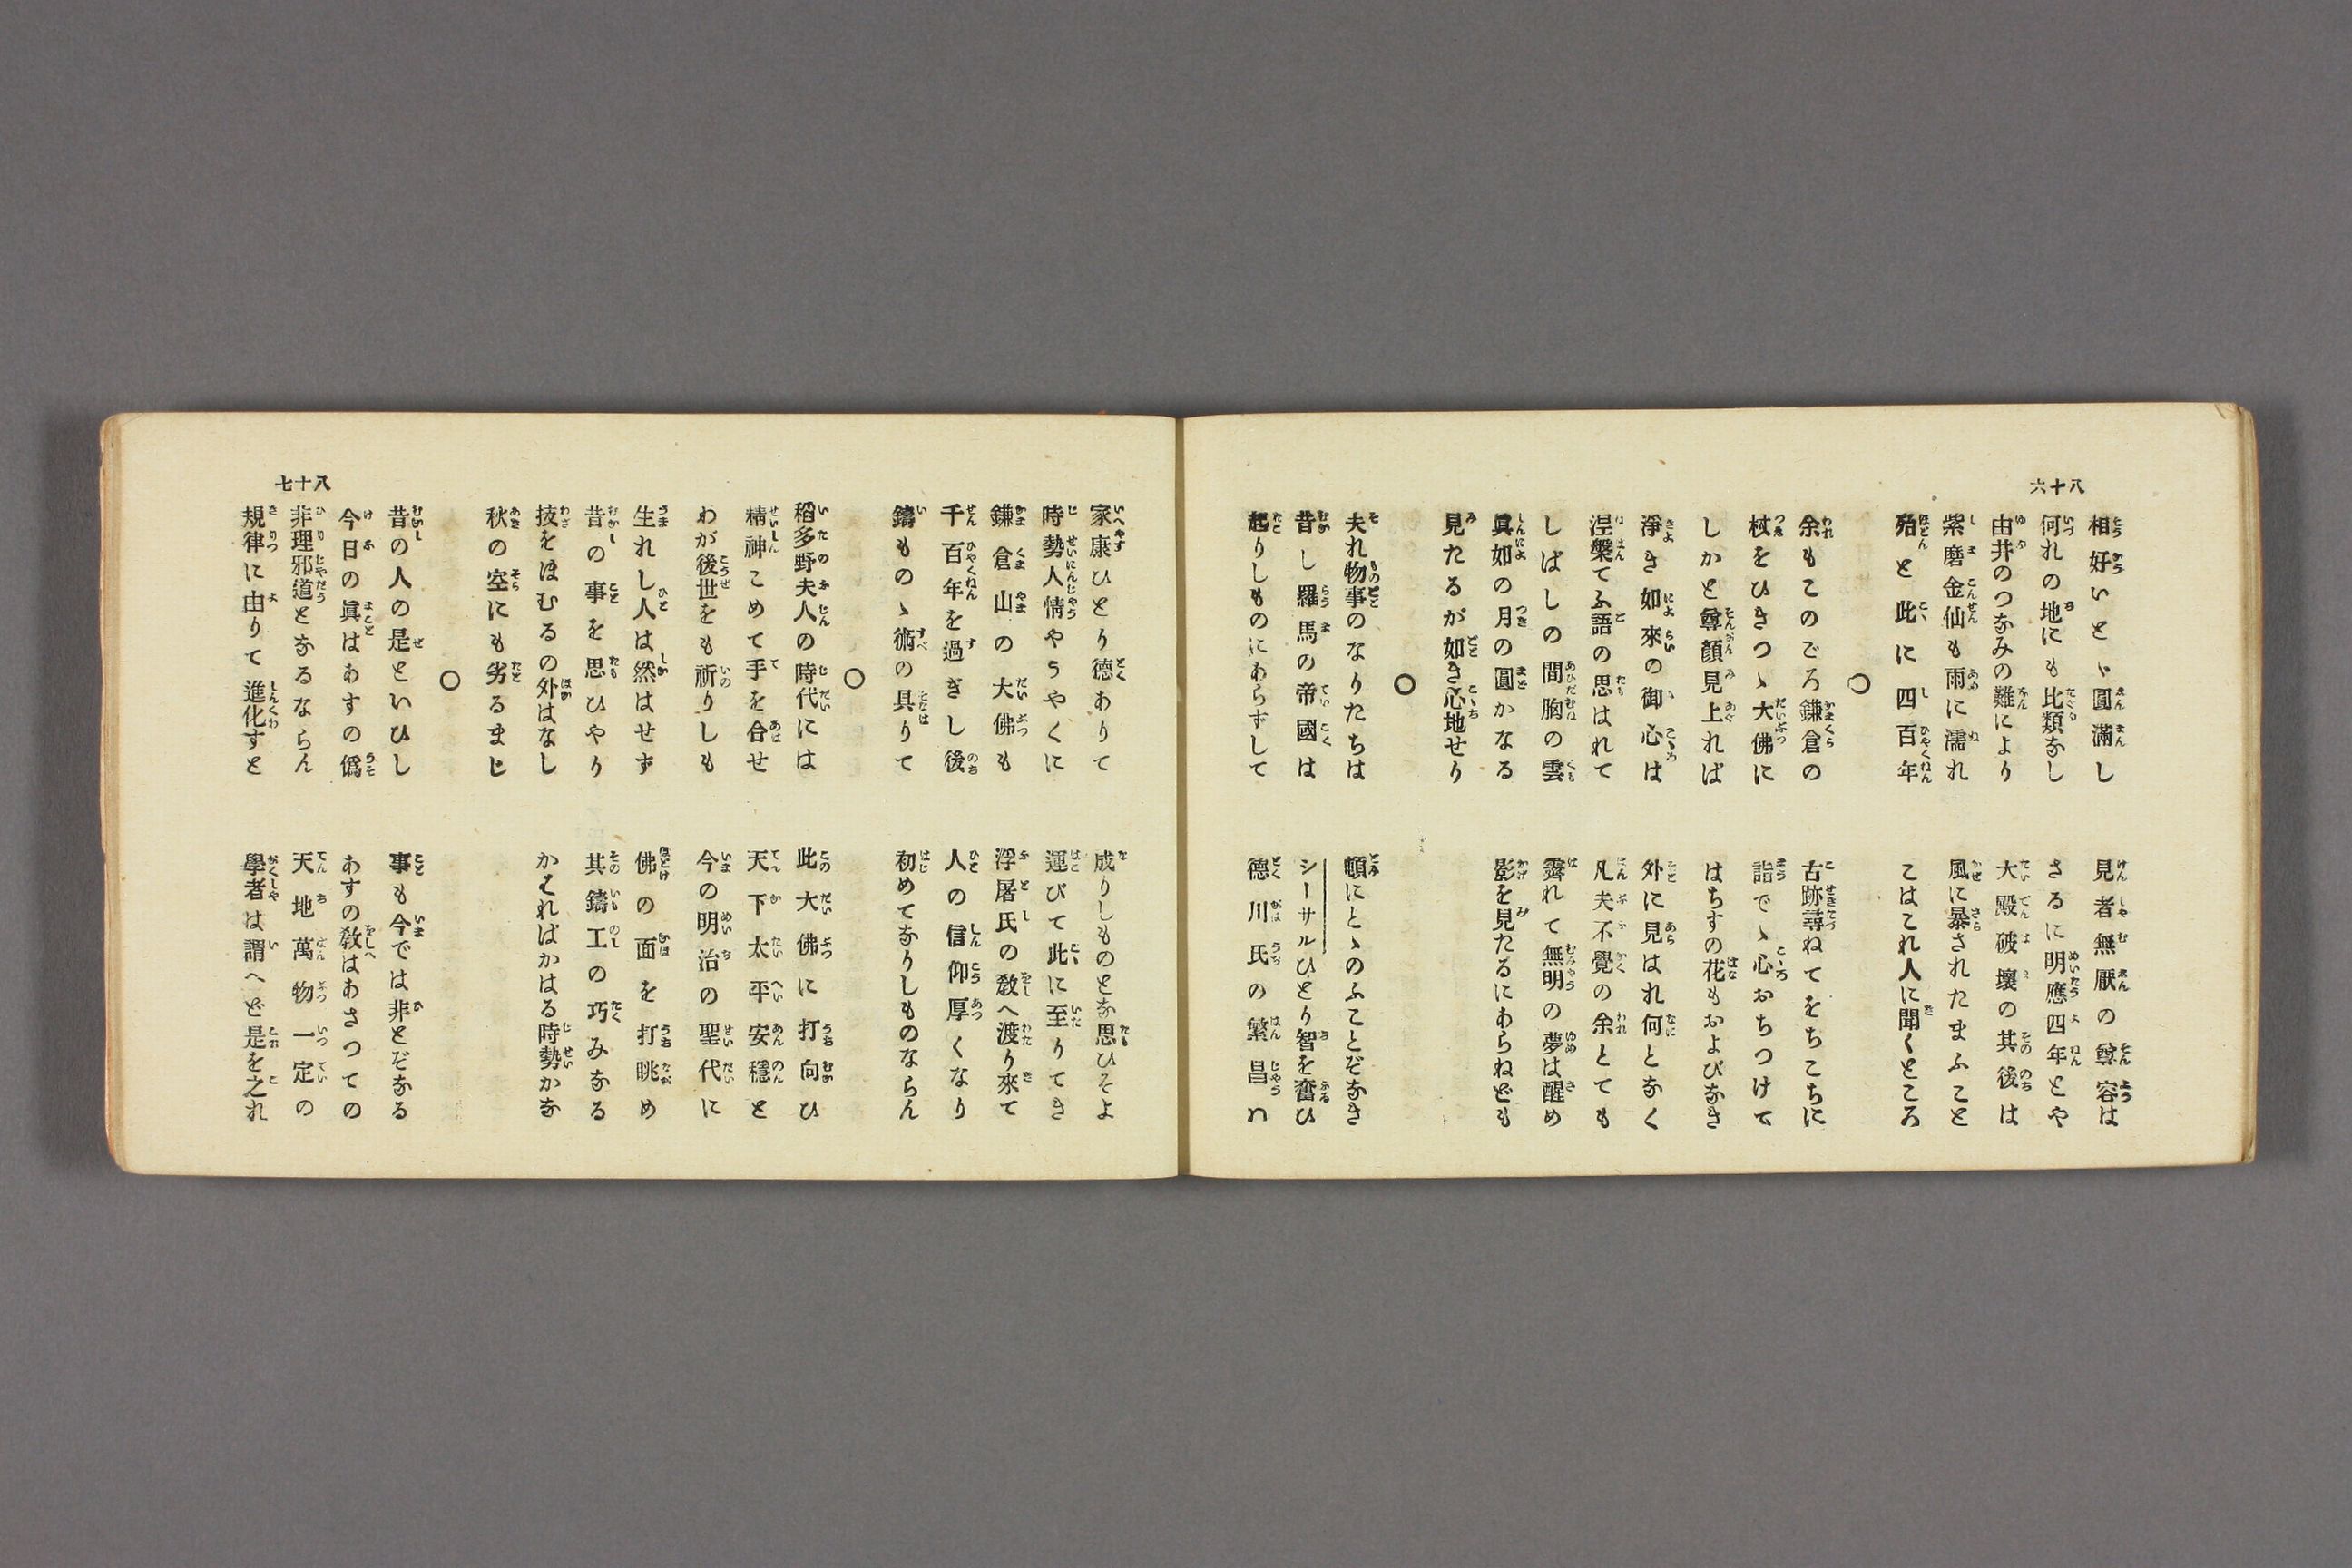 八十六
相好いとゞ圓滿し　見者無厭の尊容は
何れの地にも比類なし　さるに明應四年とや
由井のつなみの難により　大殿破壞の其後は
紫磨金仙も雨に濡れ　風に暴されたまふこと
殆と此に四百年　こはこれ人に聞くところ
○
余もこのごろ鎌倉の　古跡尋ねてをちこちに
杖をひきつゝ大佛に　詣でゝ心おちつけて
しかと尊顏見上れば　はちすの花もおよびなき
淨き如來の御心は　外に見はれ何となく
涅槃てふ語の思はれて　凡夫不覺の余とても
しばしの間胸の雲　霽れて無明の夢は醒め
眞如の月の圓かなる　影を見たるにあらねども
見たるが如き心地せり
○
夫れ物事のなりたちは　頓にとゝのふことぞなき
昔し羅馬の帝國は　シーサルひとり智を奮ひ
起りしものにあらずして　德川氏の繁昌ハ
八十七
家康ひとり德ありて　成りしものとな思ひそよ
時勢人情やうやくに　運びて此に至りてき
鎌倉山の大佛も　浮屠氏の敎へ渡り來て
千百年を過ぎし後　人の信仰厚くなり
鑄ものゝ術の具りて　初めてなりしものならん
○
稻多野夫人の時代には　此大佛に打向ひ
精神こめて手を合せ　天下太平安穩と
わが後世をも祈りしも　今の明治の聖代に
生れし人は然はせず　佛の面を打眺め
昔の事を思ひやり　其鑄工の巧みなる
技をほむるの外はなし　かゝればかはる時勢かな
秋の空にも劣るまじ
○
昔の人の是といひし　事も今では非とぞなる
今日の眞はあすの僞　あすの敎はあさつての
非理邪道となるならん　天地萬物一定の
規律に由りて進化すと　學者は謂へど是を之れ